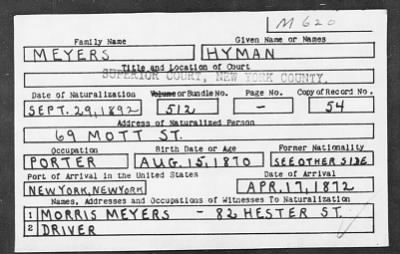 M620
Family Name Given Name or Names
MEYERS HYMAN
Title and Location of Court
SUPERIOR COURT, NEW YORK COUNTY.
Date of Naturalization Volume or Bundle No. Page No. Copy of Record No.
SEPT. 29, 1892 512 - 54
Address of Naturalized Person
69 MOTT ST.
Occupation Birth Date or Age Former Nationality
PORTER AUG. 15, 1870 SEE OTHER SIDE
Port of Arrival in the United States Date of Arrival
NEW YORK, NEW YORK APR. 17, 1872
Names, Addresses and Occupations of Witnesses To Naturalization
1 MORRIS MEYERS - 82 HESTER ST.
2 DRIVER